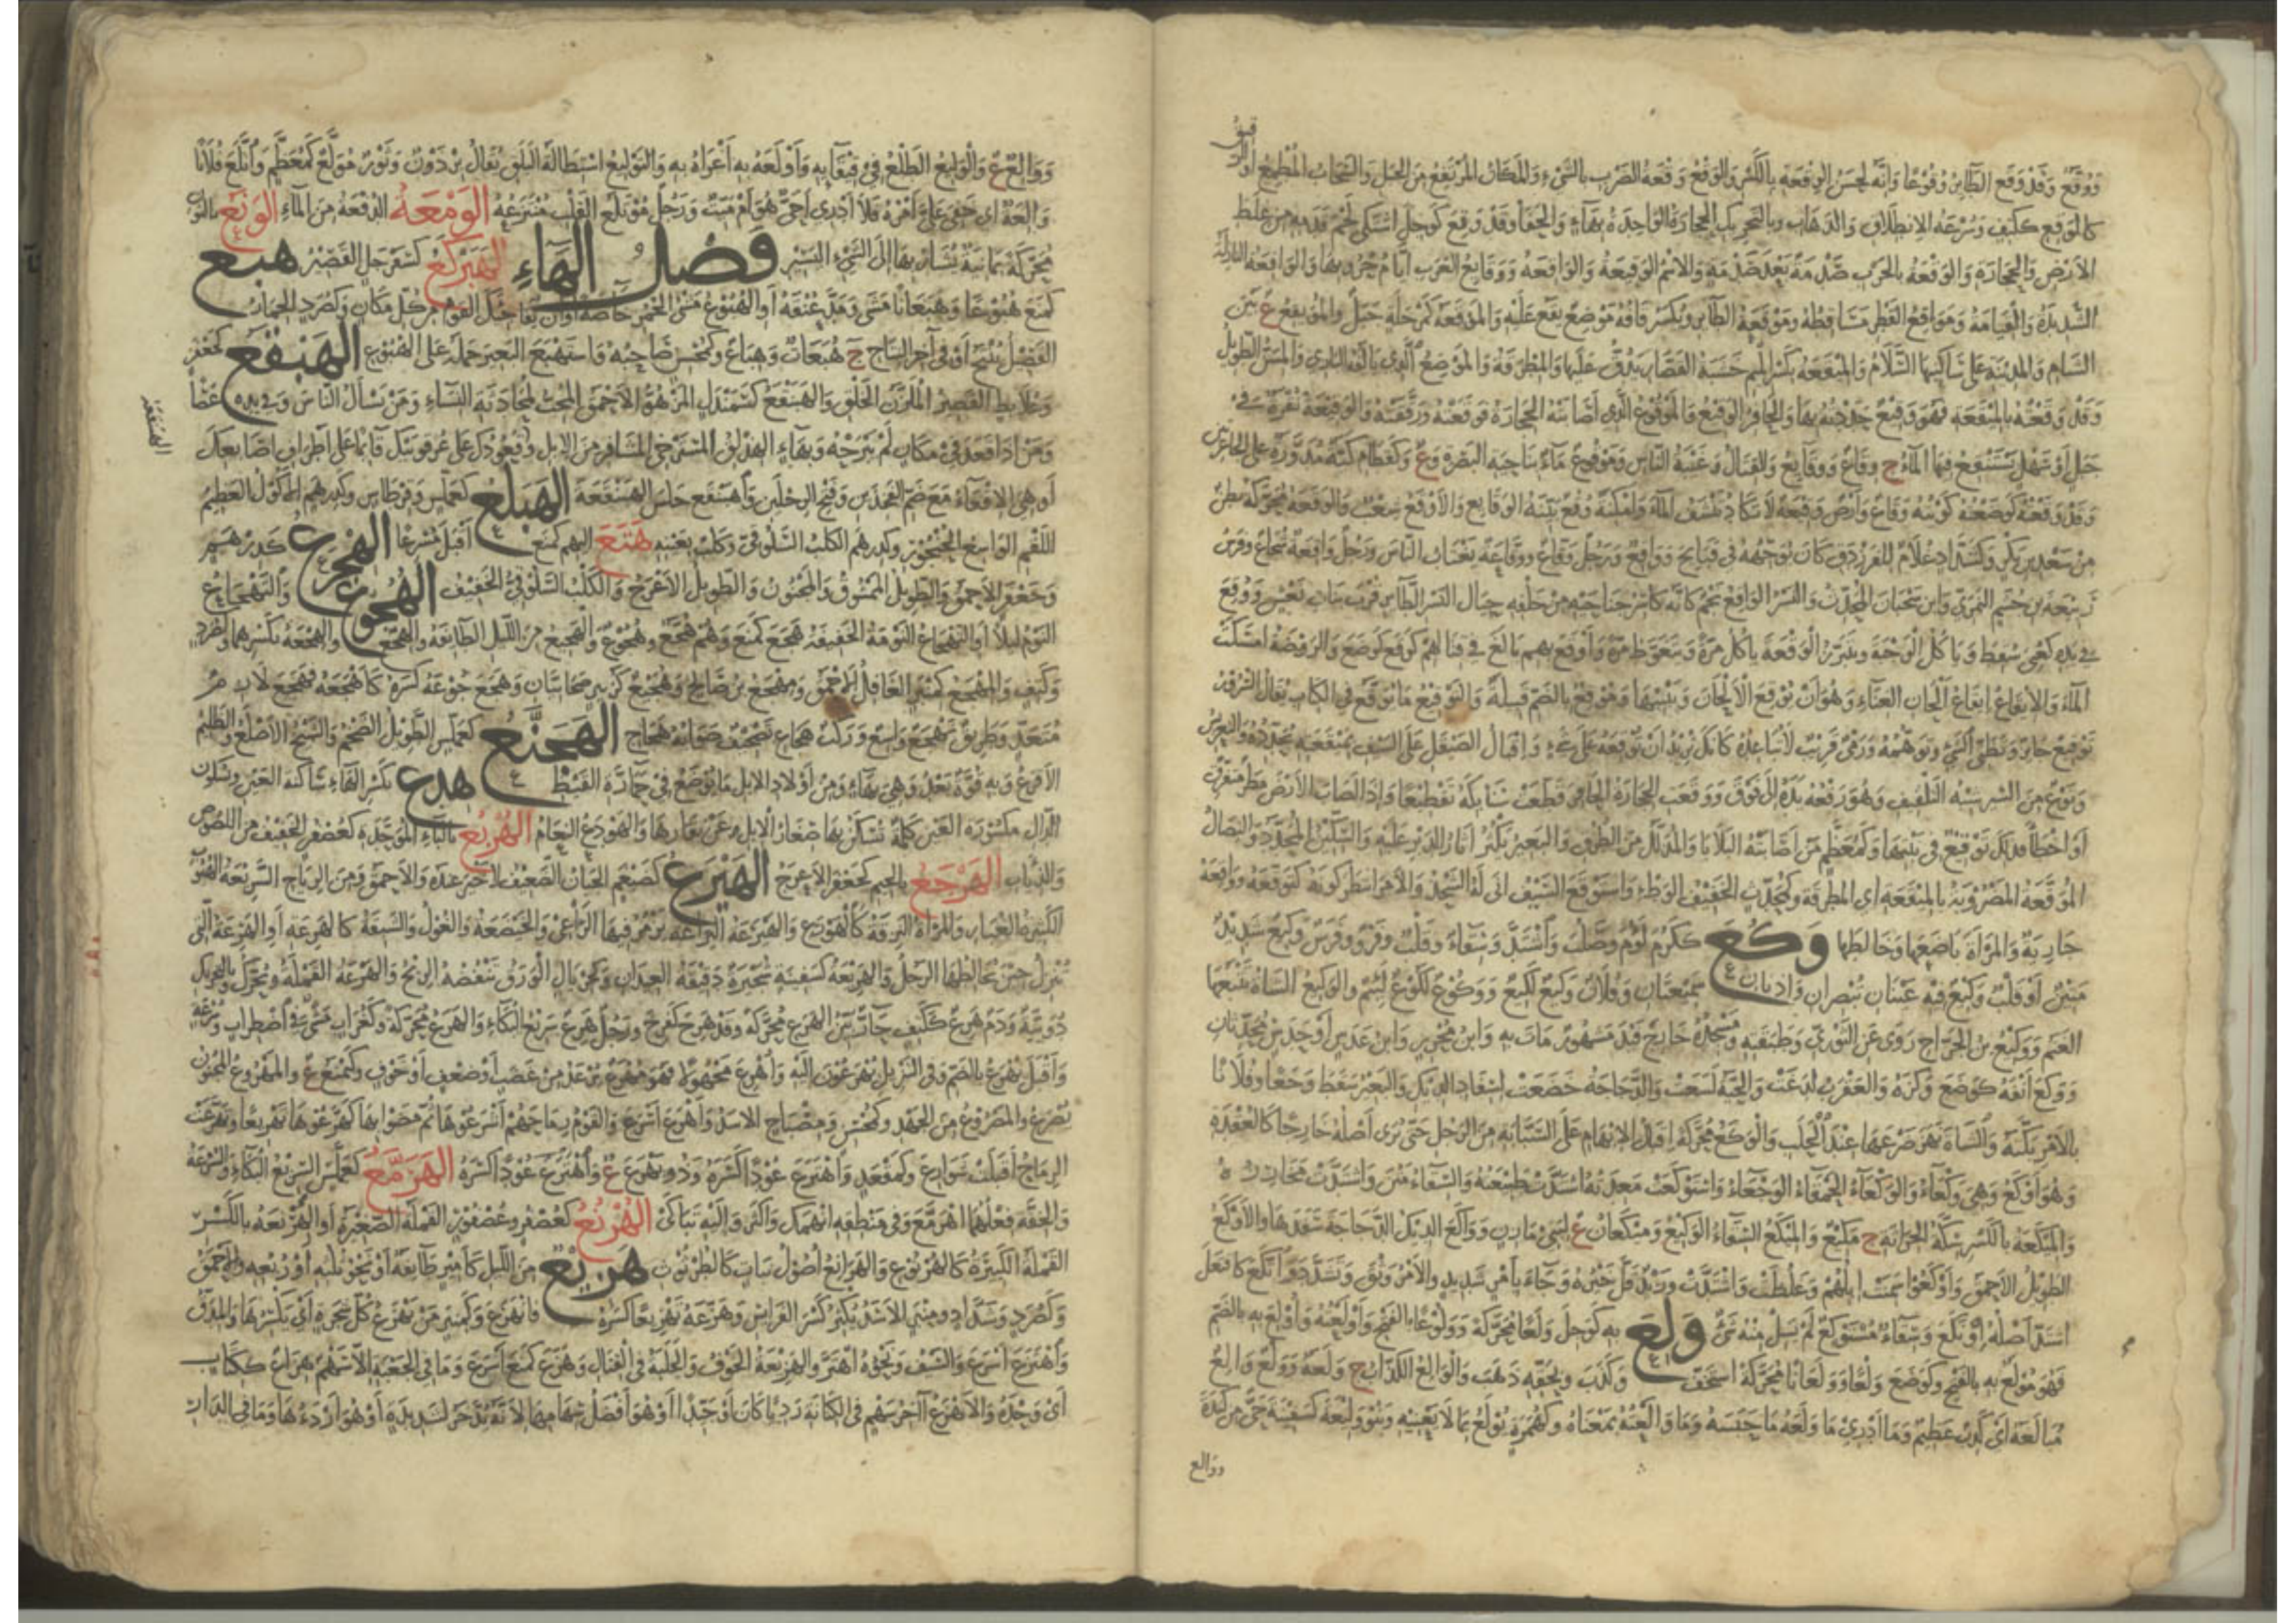 ووُقَّع وقد وقع الطائر وقوعا وانه لحسن الوقعة بالكسر والوقع وقعة الضرب بالشيء والمكان المرتفع من الجبل والسحاب المطمع او الرقيق
كالوقع ككتف وسرعة الانطلاق والذهاب وبالتحريك الحجارة الواحدة بهاء والحفا وقد وقع كوجل اشتكى لحم قدمه من غلظ
الارض والحجارة والوقعة بالحرب صدمة بعد صدمة والاسم الوقيعة والواقعة ووقايع العرب ايام حروبها والواقعة النازلة
الشديدة والقيامة ومواقع القطر مساقطه وموقعة الطاير وتكسر قافه موضع يقع عليه والموقعة كمرحلة جبل والموقع ع بين
الشام والمدينة على ساكنها السلام والميقعة بكسر الميم خشبة القصار يدق عليها والمطرقة والموضع الذي يالفه البازي والمسن الطويل
وقد وقعته بالميقعة فهو وقيع حددته بها والحافر الوقيع والموقوع الذي اصابته الحجارة فوقعته ورققته والوقيعة نقرة في
جبل او سهل يستنقع فيها الماء ج وقاع ووقايع والقتال وغيبة الناس وموقوع ماء بناحية البصرة وع وكقطام كية مدورة على الجاعرتين
وقد وقعته كوضعته كويته وقاع وارض وقيعة لا تكاد تنشف الماء وامكنة وقع بينة الوقايع والاوقع شعب والوقعة محركة بطن
من سعد بن بكر وكشداد غلام للفرزدق كان يوجهه في قبايح وواقع ورجل وقاع ووقاعة يغتاب الناس ورجل واقعة شجاع وفرس
ربيعة بن جشم النمري وابن سحبان المحدث والنسر الواقع نجم كانه كاسر جناحيه من خلفه حيال النسر الطاير قرب بنات نعش ووقع
في يده كعني سقط وياكل الوجبة ويتبرز الوقعة ياكل مرة ويتغوط مرة واوقع بهم بالغ في قتالهم كوقع كوضع والروضة امسكت
الماء والايقاع ايقاع الحان الغناء وهو ان يوقع الالحان ويبينها وموقع بالضم قبيلة والتوقيع ما يوقع في الكتاب يقال السرور
توقيع جايز وتظني الشيء وتوهمه ورمي قريب لا تباعده كانك تريد ان توقعه على شيء واقبال الصيقل على السيف بميقعته يحدده والتعريس
ونوع من السير شبه التلقيف وهو رفعه يده الى فوق ووقعت الحجارة الحافر قطعت سنابكه تقطيعا واذا اصاب الارض مطر متفرق
او اخطا فذلك توقيع في نبتها وكمعظم من اصابته البلايا والمذلل من الطرق والبعير تكثر اثار الدبر عليه والسكين المحدد والنصال
الموقعة المضروبة بالميقعة اي المطرقة وكمحدث الخفيف الوطء واستوقع السيف انى له الشحذ والامر انتظر كونه كتوقعه وواقعه
حاربه والمراة باضعها وخالطها وكع ككرم لؤم وصلب واشتد وسقاء وقلب وفرو وفرس وكيع شديد
متين او قلب وكيع فيه عينان تبصران واذنان سميعتان وفلان وكيع لكيع ووكوع لكوع لئيم والوكيع الشاة تتبعها
الغنم ووكيع بن الجراح روى عن الثوري وطبقته ومسجده خارج فيد مشهور مات به وابن محرز وابن عدس او حدس محدثان
ووكع انفه كوضع وكزه والعقرب لدغت والحية لسعت والدجاجة خضعت لسفاد الديك والبعير سقط وجعا وفلانا
بالامر بكته والشاة نهز ضرعها عند الحلب والوكع محركة اقبال الابهام على السبابة من الرجل حتى يرى اصله خارجا كالعقدة
وهو اوكع وهي وكعاء والوكعاء الحمقاء الوجعاء واستوكعت معدته اشتدت طبيعته والسقاء متن واشتدت مخارزه
والميكعة بالكسر سكة الحراثة ج ميكع والميكع السقاء الوكيع وميكعان ع لبني مازن وواكع الديك الدجاجة سفدها والاوكع
الطويل الاحمق واوكعوا سمنت ابلهم وغلظت واشتدت وزيد قل خيره وجاء بامر شديد والامر وثق وتشدد واتكع كافتعل
اشتد اصله اوتكع وسقاء مستوكع لم يسل منه شيء ولع به كوجل ولعا محركة وولوعا بالفتح واولعته واولع به بالضم
فهو مولع به بالفتح وكوضع ولعا وولعانا محركة استخف وكذب وبحقه ذهب والوالع الكذاب ج ولعة وولع والع
مبالغة اي كذب عظيم وما ادري ما ولعه ما حبسه وما والعته بمعناه وكهمزة يولع بما لا يعنيه وبنو وليعة كسفينة حي من كندة
ووالع
ووالع ع والوليع الطلع في قيقآيه واولعه به اغراه به والتوليع استطالة البلق يقال برذون وثور مولع كمعظم واتلع فلانا
والعة اي خفي علي امره فلا ادري احي هو ام ميت ورجل موتلع القلب منتزعه الومعة الدفعة من الماء الونع بالنون
محركة يمانية يشار بها الى الشيء اليسير فصل الهاء الهبركع كسفرجل القصير هبع
كمنع هبوعا وهبعانا مشى ومد عنقه او الهبوع مشي الحمر خاصة او ان يفاجئك القوم من كل مكان وكصرد الحمار
الفصيل ينتج او في آخر النتاج ج هبعات وهباع وكمحسن صاحبه واستهبع البعير حمله على الهبوع الهبنقع كجعفر
وعلابط القصير الملزز الخلق والهبنقع كسمندل المزهو الاحمق المحب لمحادثة النساء ومن يسال الناس وفي يده عصا
ومن اذا قعد في مكان لم يبرحه وبهاء الهنبق
الهبلع كعملس وقرطاس وكدرهم الاكول العظيم
اللقم الواسع الحنجور وكدرهم الكلب السلوقي وكلب بعينه هتع اليهم كمنع اقبل مسرعا الهجرع كدرهم
وجعفر الاحمق والطويل الممشوق والمجنون والطويل الاعرج والكلب السلوقي الخفيف الهجوع والتهجاع
النوم ليلا او التهجاع النومة الخفيفة هجع كمنع وهم هجع وهجوع والهجيع من الليل الطايفة والهجع والهجعة بكسرهما وكصرد
وكتف والمهجع كمنبر الغافل الاحمق ومهجع بن صالح وهجيع كزبير صحابيان وهجع جوعه كسره كاهجعه فهجع لازم
متعد وطريق تهجع واسع الهجنع كعملس الطويل الضخم والشيخ الاصلع والظليم
الاقرع وبه قوة بعد وهي بهاء ومن اولاد الابل ما يوضع في حمارة القيظ هدع بكسر الهاء ساكنة العين وسكون
الدال مكسورة العين كلمة تسكن بها صغار الابل عن نفارها والهودع النعام الهربع بالباء الموحدة كعصفر الخفيف من اللصوص
والذئاب الهرجع بالجيم كجعفر الاعرج الهيرع كضيغم الجبان الضعيف لا خير عنده والاحمق ومن الرياح السريعة الهبوب
الكثيرة الغبار والمراة النزقة كالهورع والهيرعة اليراعة يزمر فيها الراعي والخيضعة والغول والشبقة كالهرعة او الهرعة التي
تنزل حين يخالطها الرجل والهريعة كسفينة شجيرة دقيقة العيدان
دويبة ودم هرع ككتف جار بين الهرع محركة وقد هرع كفرح ورجل هرع سريع البكاء والهرع محركة وكغراب مشي في اضطراب وسرعة
واقبل يهرع بالضم وفي التنزيل يهرعون اليه واهرع مجهولا فهو مهرع يرعد من غضب او ضعف او خوف وكمقنع ع والمهروع المجنون
يصرع والمصروع من الجهد وكمحسن ومصباح الاسد واهرع اسرع والقوم رماحهم اشرعوها ثم مضوا بها كهرعوها تهريعا وتهرعت
الرماح اقبلت شوارع الهرمع كعملس السريع البكاء والسرعة
والخفة فعلهما اهرمع وفي منطقه انهمك واكثر واليه تباكى الهرنع كعصفر وعصفور القملة الصغيرة او الهرنعة بالكسر
القملة الكبيرة كالهرنوع والهرانع اصول نبات كالطرثوث هزيع من الليل كامير طايفة او نحو ثلثه او ربعه والاحمق
وكصرد وشداد ومنبر الاسد يكثر كسر الفرايس وهزعه تهزيعا كسره فانهزع وكمنبر من يهزع كل شجرة اي يكسرها والمدق
واهتزع اسرع والسيف ونحوه اهتز والهزيعة الخوف والجلبة في القتال وهزع كمنع اسرع وما في الجعبة الا سهم هزاع ككتاب
اي وحده والاهزع آخر سهم في الكنانة رديا كان او جيدا او هو افضل سهامها لانه يدخر لشديدة او هو اردءها وما في الدار